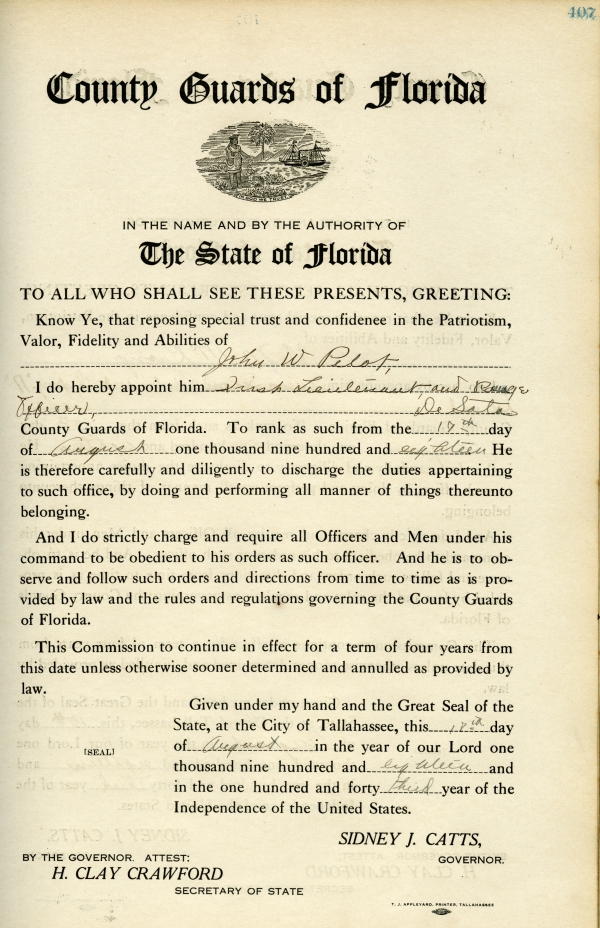 407
County Guards of Florida
IN GOD WE TRUST
IN THE NAME AND BY THE AUTHORITY OF
The State of Florida
TO ALL WHO SHALL SEE THESE PRESENTS, GREETING:
Know Ye, that reposing special trust and confidenee in the Patriotism,
Valor, Fidelity and Abilities of
John W Pelot,
I do hereby appoint him First Lieutenant, and Range
Officer, De Soto
County Guards of Florida. To rank as such from the 17th day
of August one thousand nine hundred and eighteen He
is therefore carefully and diligently to discharge the duties appertaining
to such office, by doing and performing all manner of things thereunto
belonging.
And I do strictly charge and require all Officers and Men under his
command to be obedient to his orders as such officer. And he is to ob-
serve and follow such orders and directions from time to time as is pro-
vided by law and the rules and regulations governing the County Guards
of Florida.
This Commission to continue in effect for a term of four years from
this date unless otherwise sooner determined and annulled as provided by
law.
Given under my hand and the Great Seal of the
State, at the City of Tallahassee, this 17th day
[SEAL] of August in the year of our Lord one
thousand nine hundred and eighteen and
in the one hundred and forty third year of the
Independence of the United States.
SIDNEY J. CATTS,
BY THE GOVERNOR. ATTEST: GOVERNOR.
H. CLAY CRAWFORD
SECRETARY OF STATE
T. J. APPLEYARD, PRINTER, TALLAHASSEE